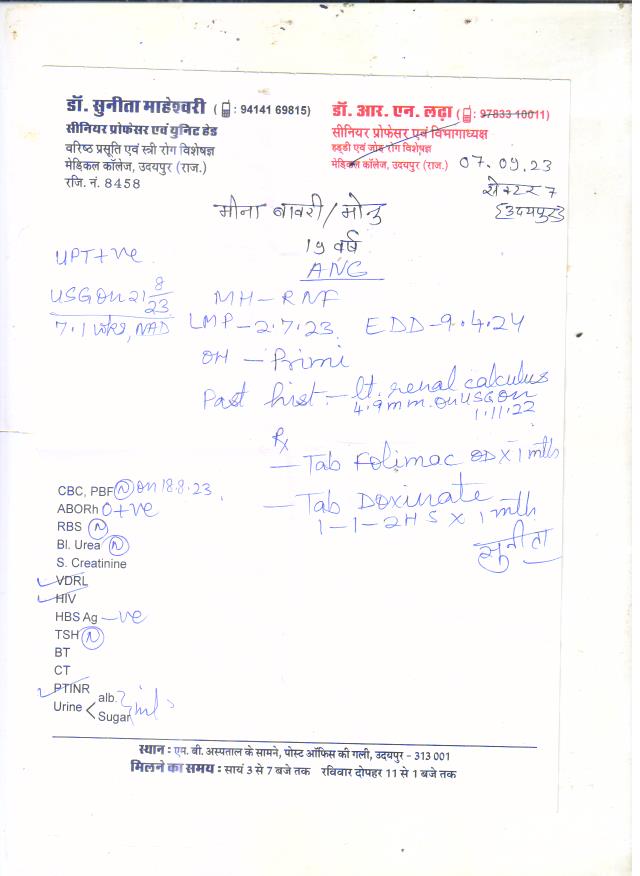 डॉ. सुनीता माहेश्वरी ( : 94141 69815)
सीनियर प्रोफेसर एवं युनिट हेड
वरिष्ठ प्रसूति एवं स्त्री रोग विशेषज्ञ
मेडिकल कॉलेज, उदयपुर (राज.)
रजि. नं. 8458
डॉ. आर. एन. लढ़ा ( : 97833 10011)
सीनियर प्रोफेसर एवं विभागाध्यक्ष
हड्डी एवं जोड़ रोग विशेषज्ञ
मेडिकल कॉलेज, उदयपुर (राज.)
07.09.23
सेक्टर 7
उदयपुर
मोना बावरी/मोनु
19 वर्ष
ANC
UPT+ve
USG on 21/8/23
7.1 wks, NAD
MH-RNF
LMP-2.7.23 EDD-9.4.24
OH - Primi
Past hist.- lt. renal calculus
4.9mm. on USG on
1.11.22
Rx
- Tab Folimac OD X 1 mth
- Tab Doxinate
1-1-2HS X 1 mth
सुनीता
CBC, PBF (N) on 18.8.23,
ABORh O+ve
RBS (N)
Bl. Urea (N)
S. Creatinine
VDRL
HIV
HBS Ag -ve
TSH (N)
BT
CT
PTINR
Urine < alb. } nil
Sugar
स्थान : एम. बी. अस्पताल के सामने, पोस्ट ऑफिस की गली, उदयपुर - 313 001
मिलने का समय : सायं 3 से 7 बजे तक रविवार दोपहर 11 से 1 बजे तक